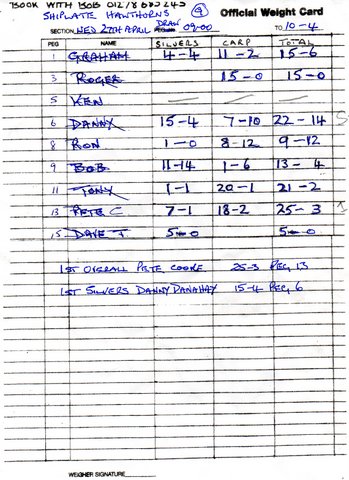 BOOK WITH BOB 01278 685243
SHIPLATE HAWTHORNS 9 Official Weight Card
SECTION WED 27TH APRIL DRAW 09-00 TO 10-4
PEG NAME SILVERS CARP TOTAL
1 GRAHAM 4-4 11-2 15-6
3 ROGER 15-0 15-0
5 KEN
6 DANNY 15-4 7-10 22-14 S
8 RON 1-0 8-12 9-12
9 BOB 11-14 1-6 13-4
11 TONY 1-1 20-1 21-2
13 PETE C 7-1 18-2 25-3 1
15 DAVE T 5-0 5-0
1ST OVERALL PETE COOKE 25-3 PEG 13
1ST SILVERS DANNY DANAHAY 15-4 PEG 6
WEIGHER SIGNATURE